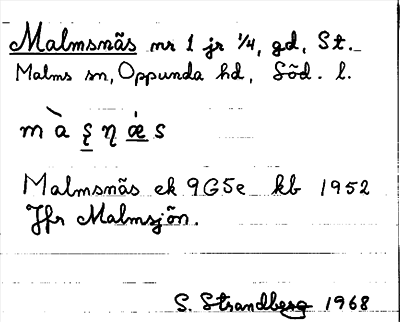 Malmsnäs nr 1 jr 1/4, gd, St.
Malms sn, Oppunda hd, Söd. l.
Malmsnäs ek 9G5e kb 1952
Jfr Malmsjön.
S. Strandberg 1968